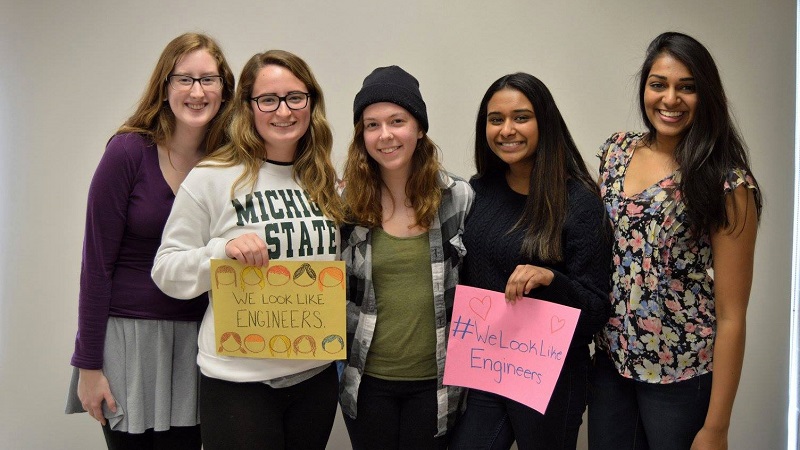 MICHIGAN
STATE
WE LOOK LIKE
ENGINEERS.
#WeLookLike
Engineers